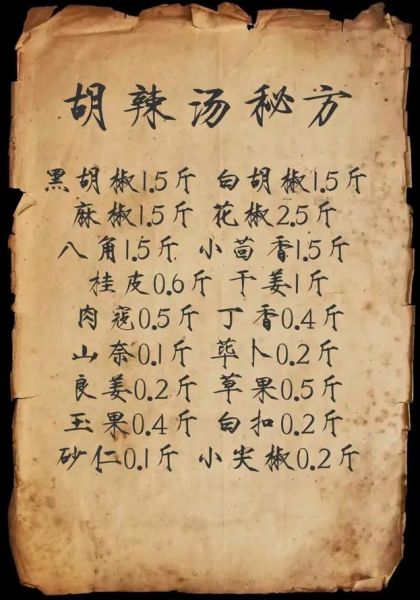 胡辣汤秘方
黑胡椒1.5斤 白胡椒1.5斤
麻椒1.5斤 花椒2.5斤
八角1.5斤 小茴香1.5斤
桂皮0.6斤 干姜1斤
肉寇0.5斤 丁香0.4斤
山奈0.1斤 荜卜0.2斤
良姜0.2斤 草果0.5斤
玉果0.4斤 白扣0.2斤
砂仁0.1斤 小尖椒0.2斤